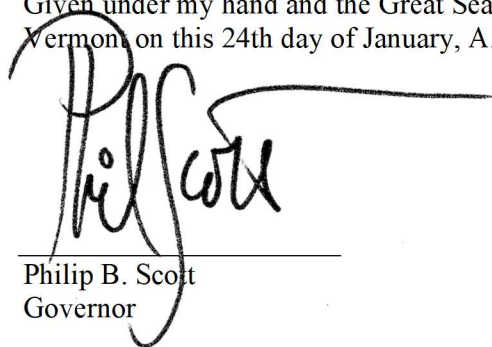 Given under my hand and the Great Sea
Vermont on this 24th day of January, A.
Phil Scott
Philip B. Scott
Governor